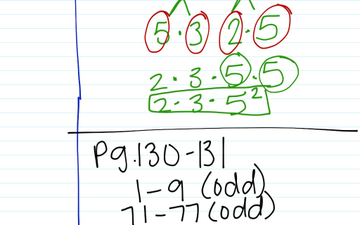 5 · 3 2 · 5
2 · 3 · 5 · 5
2 · 3 · 5²
Pg. 130-131
1-9 (odd)
71-77 (odd)